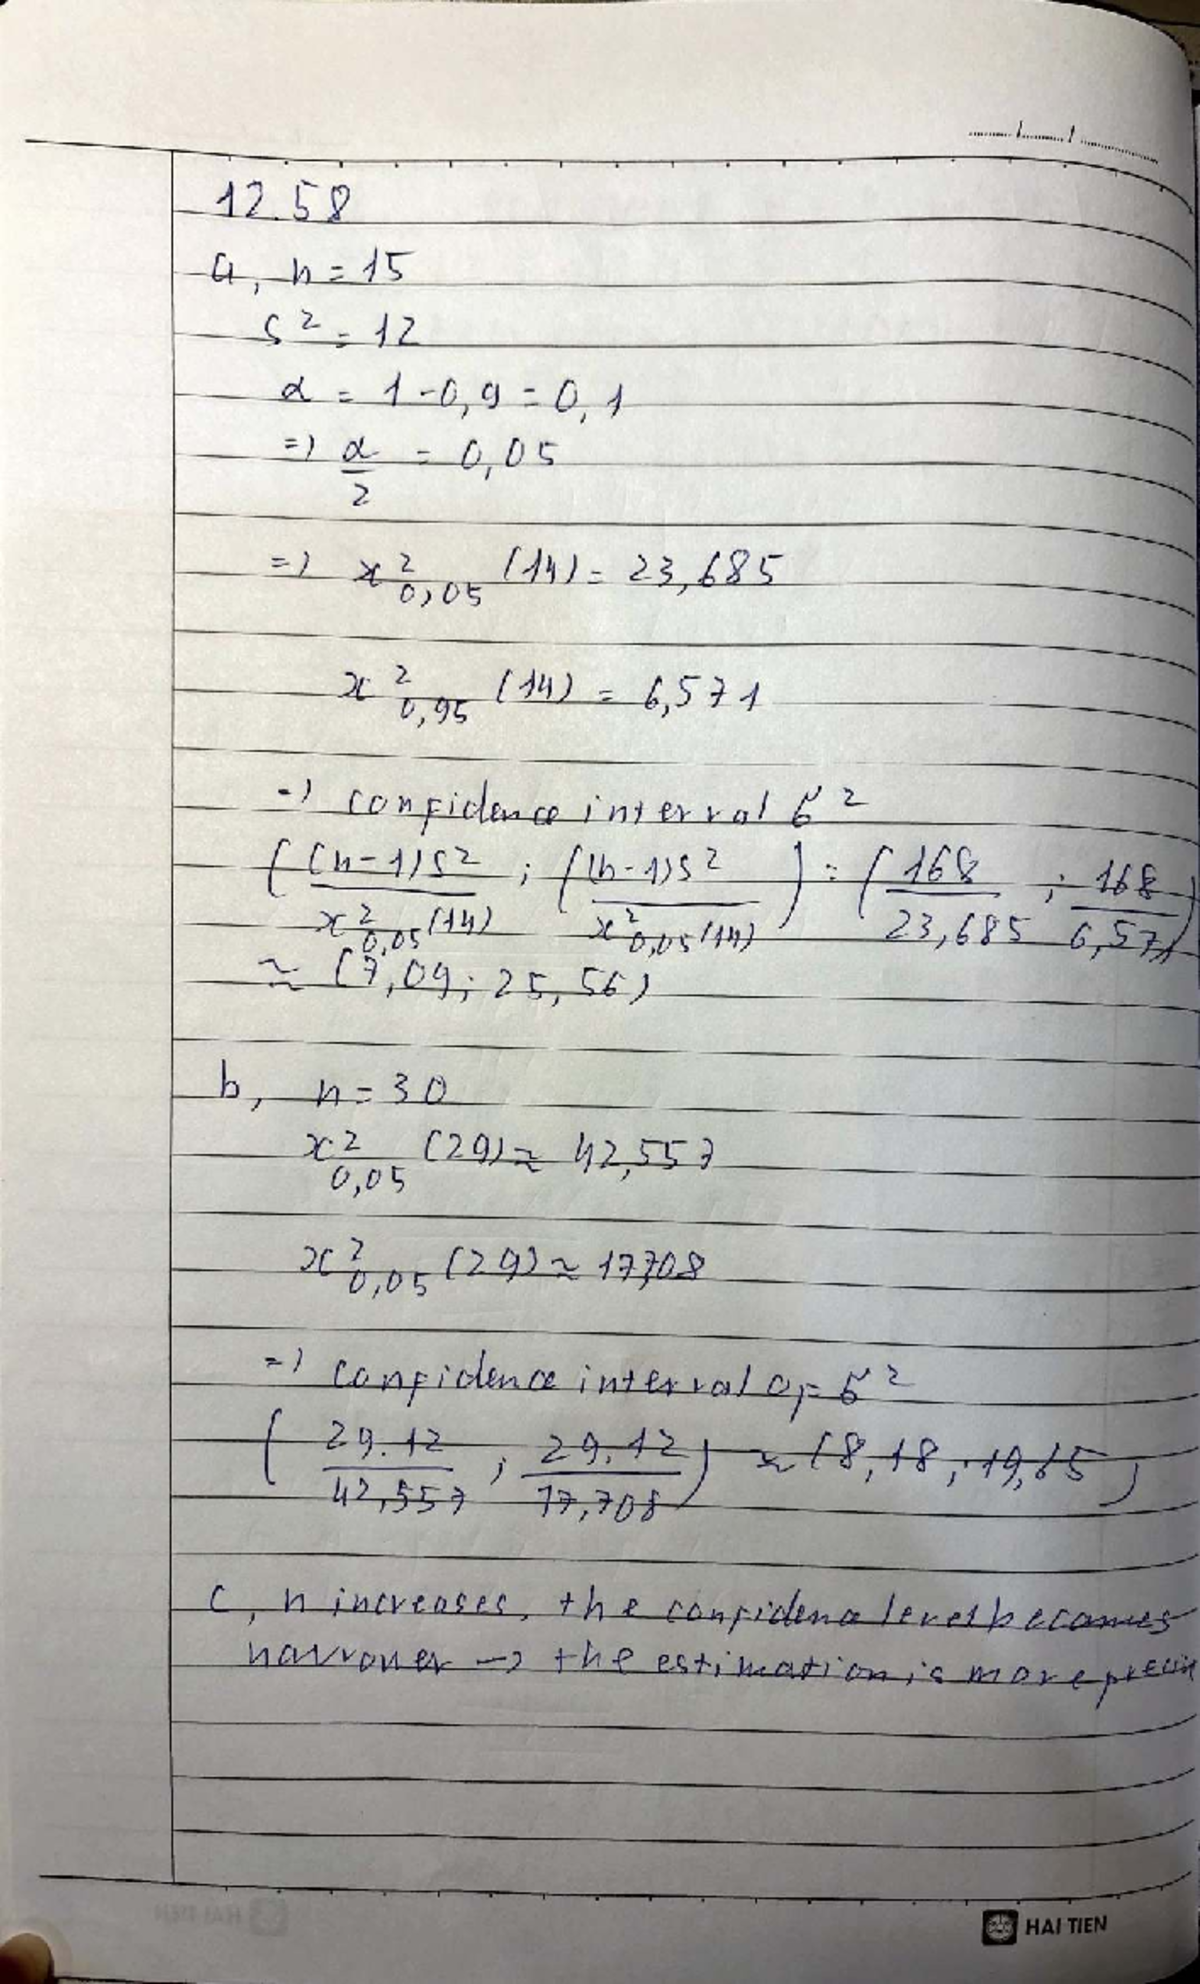 12.58
a, n = 15
s² = 12
α = 1 - 0,9 = 0,1
=) α/2 = 0,05
=) x²0,05 (14) = 23,685
x²0,95 (14) = 6,571
=) confidence interval σ²
( (n-1)s² / x²0,05(14) ; (n-1)s² / x²0,05(14) ) = ( 168 / 23,685 ; 168 / 6,571 )
≈ (7,09; 25,56)
b, n = 30
x²0,05 (29) ≈ 42,557
x²0,05 (29) ≈ 17,708
=) confidence interval of σ²
( 29.12 / 42,557 ; 29.12 / 17,708 ) ≈ (8,18 ; 19,65)
c, n increases, the confidence level becomes
narrower -> the estimation is more
HAI TIEN